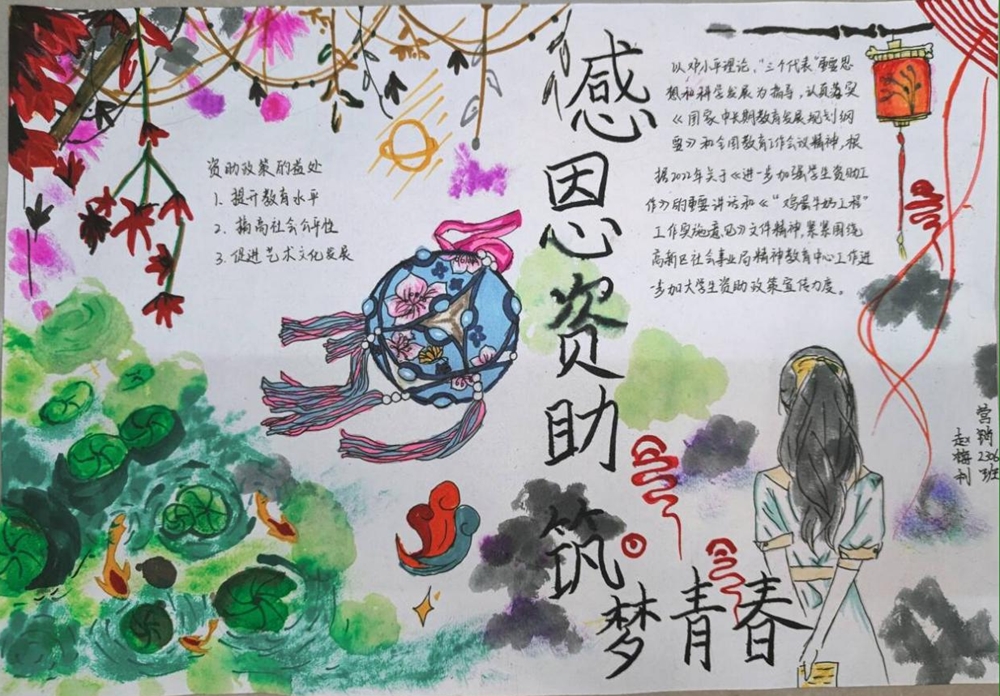 感恩资助
筑梦青春
资助政策的益处
1. 提升教育水平
2. 搞高社会公平性
3. 促进艺术文化发展
以邓小平理论，“三个代表”重要思
想和科学发展为指导，认真落实
《国家中长期教育发展规划纲
要》和全国教育工作会议精神，根
据2022年关于《进一步加强学生资助工
作》的重要讲话和《“鸡蛋牛奶工程”
工作实施意见》文件精神，紧紧围绕
高新区社会事业局精神教育中心工作进
一步加大学生资助政策宣传力度。
营销2306班
赵梅利